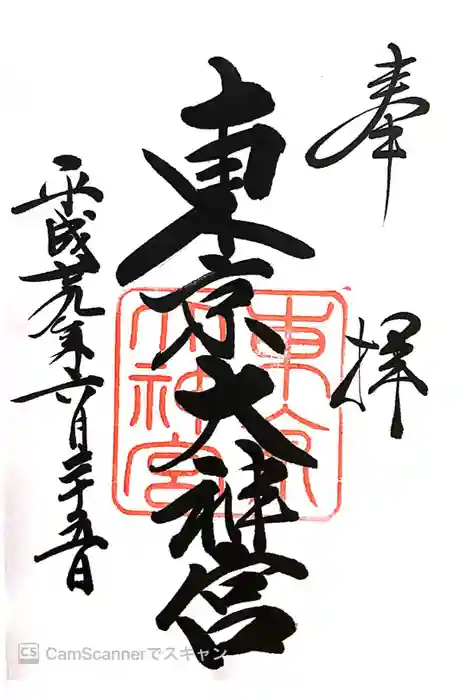 奉拝
東京大神宮
東京大神宮
平成廿九年六月二十五日
CamScannerでスキャン